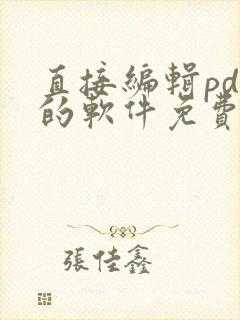 直接編輯pd
的軟件免費
張佳鑫